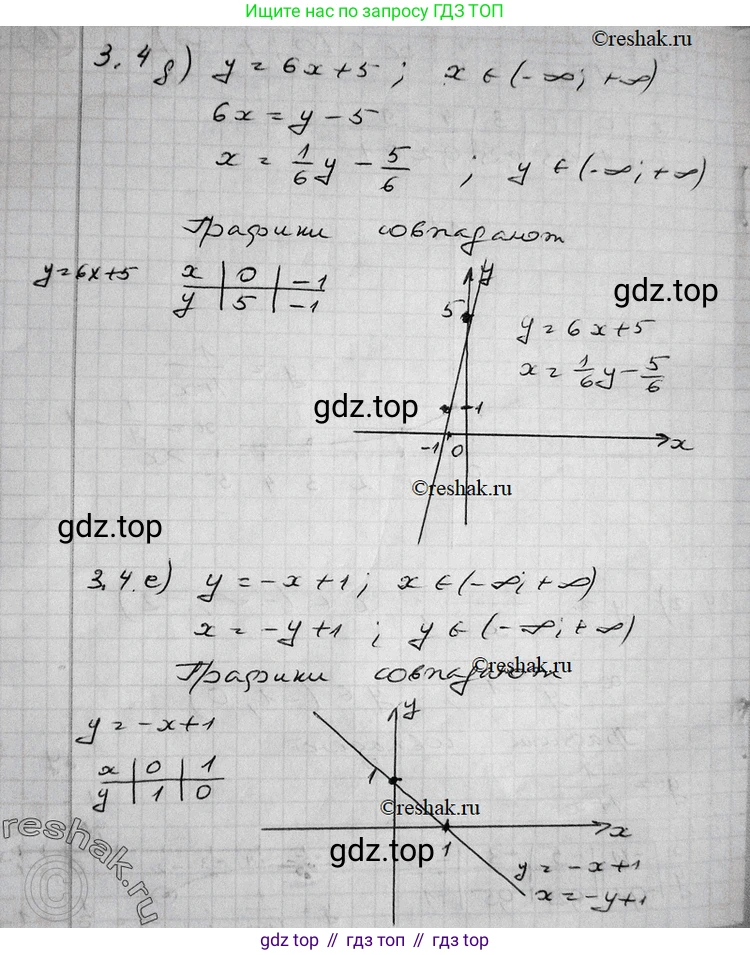 Ищите нас по запросу ГДЗ ТОП
©reshak.ru
3.4 д) y = 6x + 5 ; x ∈ (-∞; +∞)
6x = y - 5
x = 1/6 y - 5/6 ; y ∈ (-∞; +∞)
Графики совпадают
y = 6x + 5
x | 0 | -1
y | 5 | -1
y
5
gdz.top
y = 6x + 5
x = 1/6 y - 5/6
gdz.top
1
-1 0
x
©reshak.ru
gdz.top
3.4. е) y = -x + 1 ; x ∈ (-∞; +∞)
x = -y + 1 ; y ∈ (-∞; +∞)
©reshak.ru
Графики совпадают
y = -x + 1
x | 0 | 1
y | 1 | 0
y
1
©reshak.ru
x
gdz.top
1
y = -x + 1
x = -y + 1
reshak.ru
gdz топ // гдз топ // gdz top